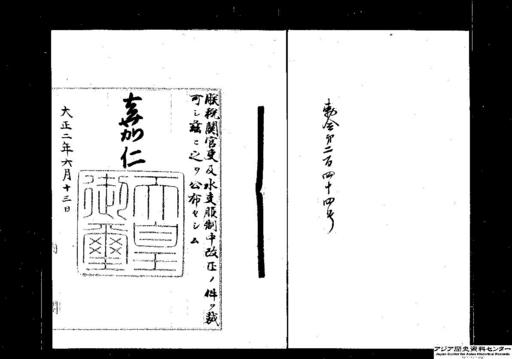 勅令第二百四十四号
朕税関官吏及水吏服制中改正ノ件ヲ裁
可シ茲ニ之ヲ公布セシム
嘉仁
天皇
御璽
大正二年六月十三日
アジア歴史資料センター
Japan Center for Asian Historical Records